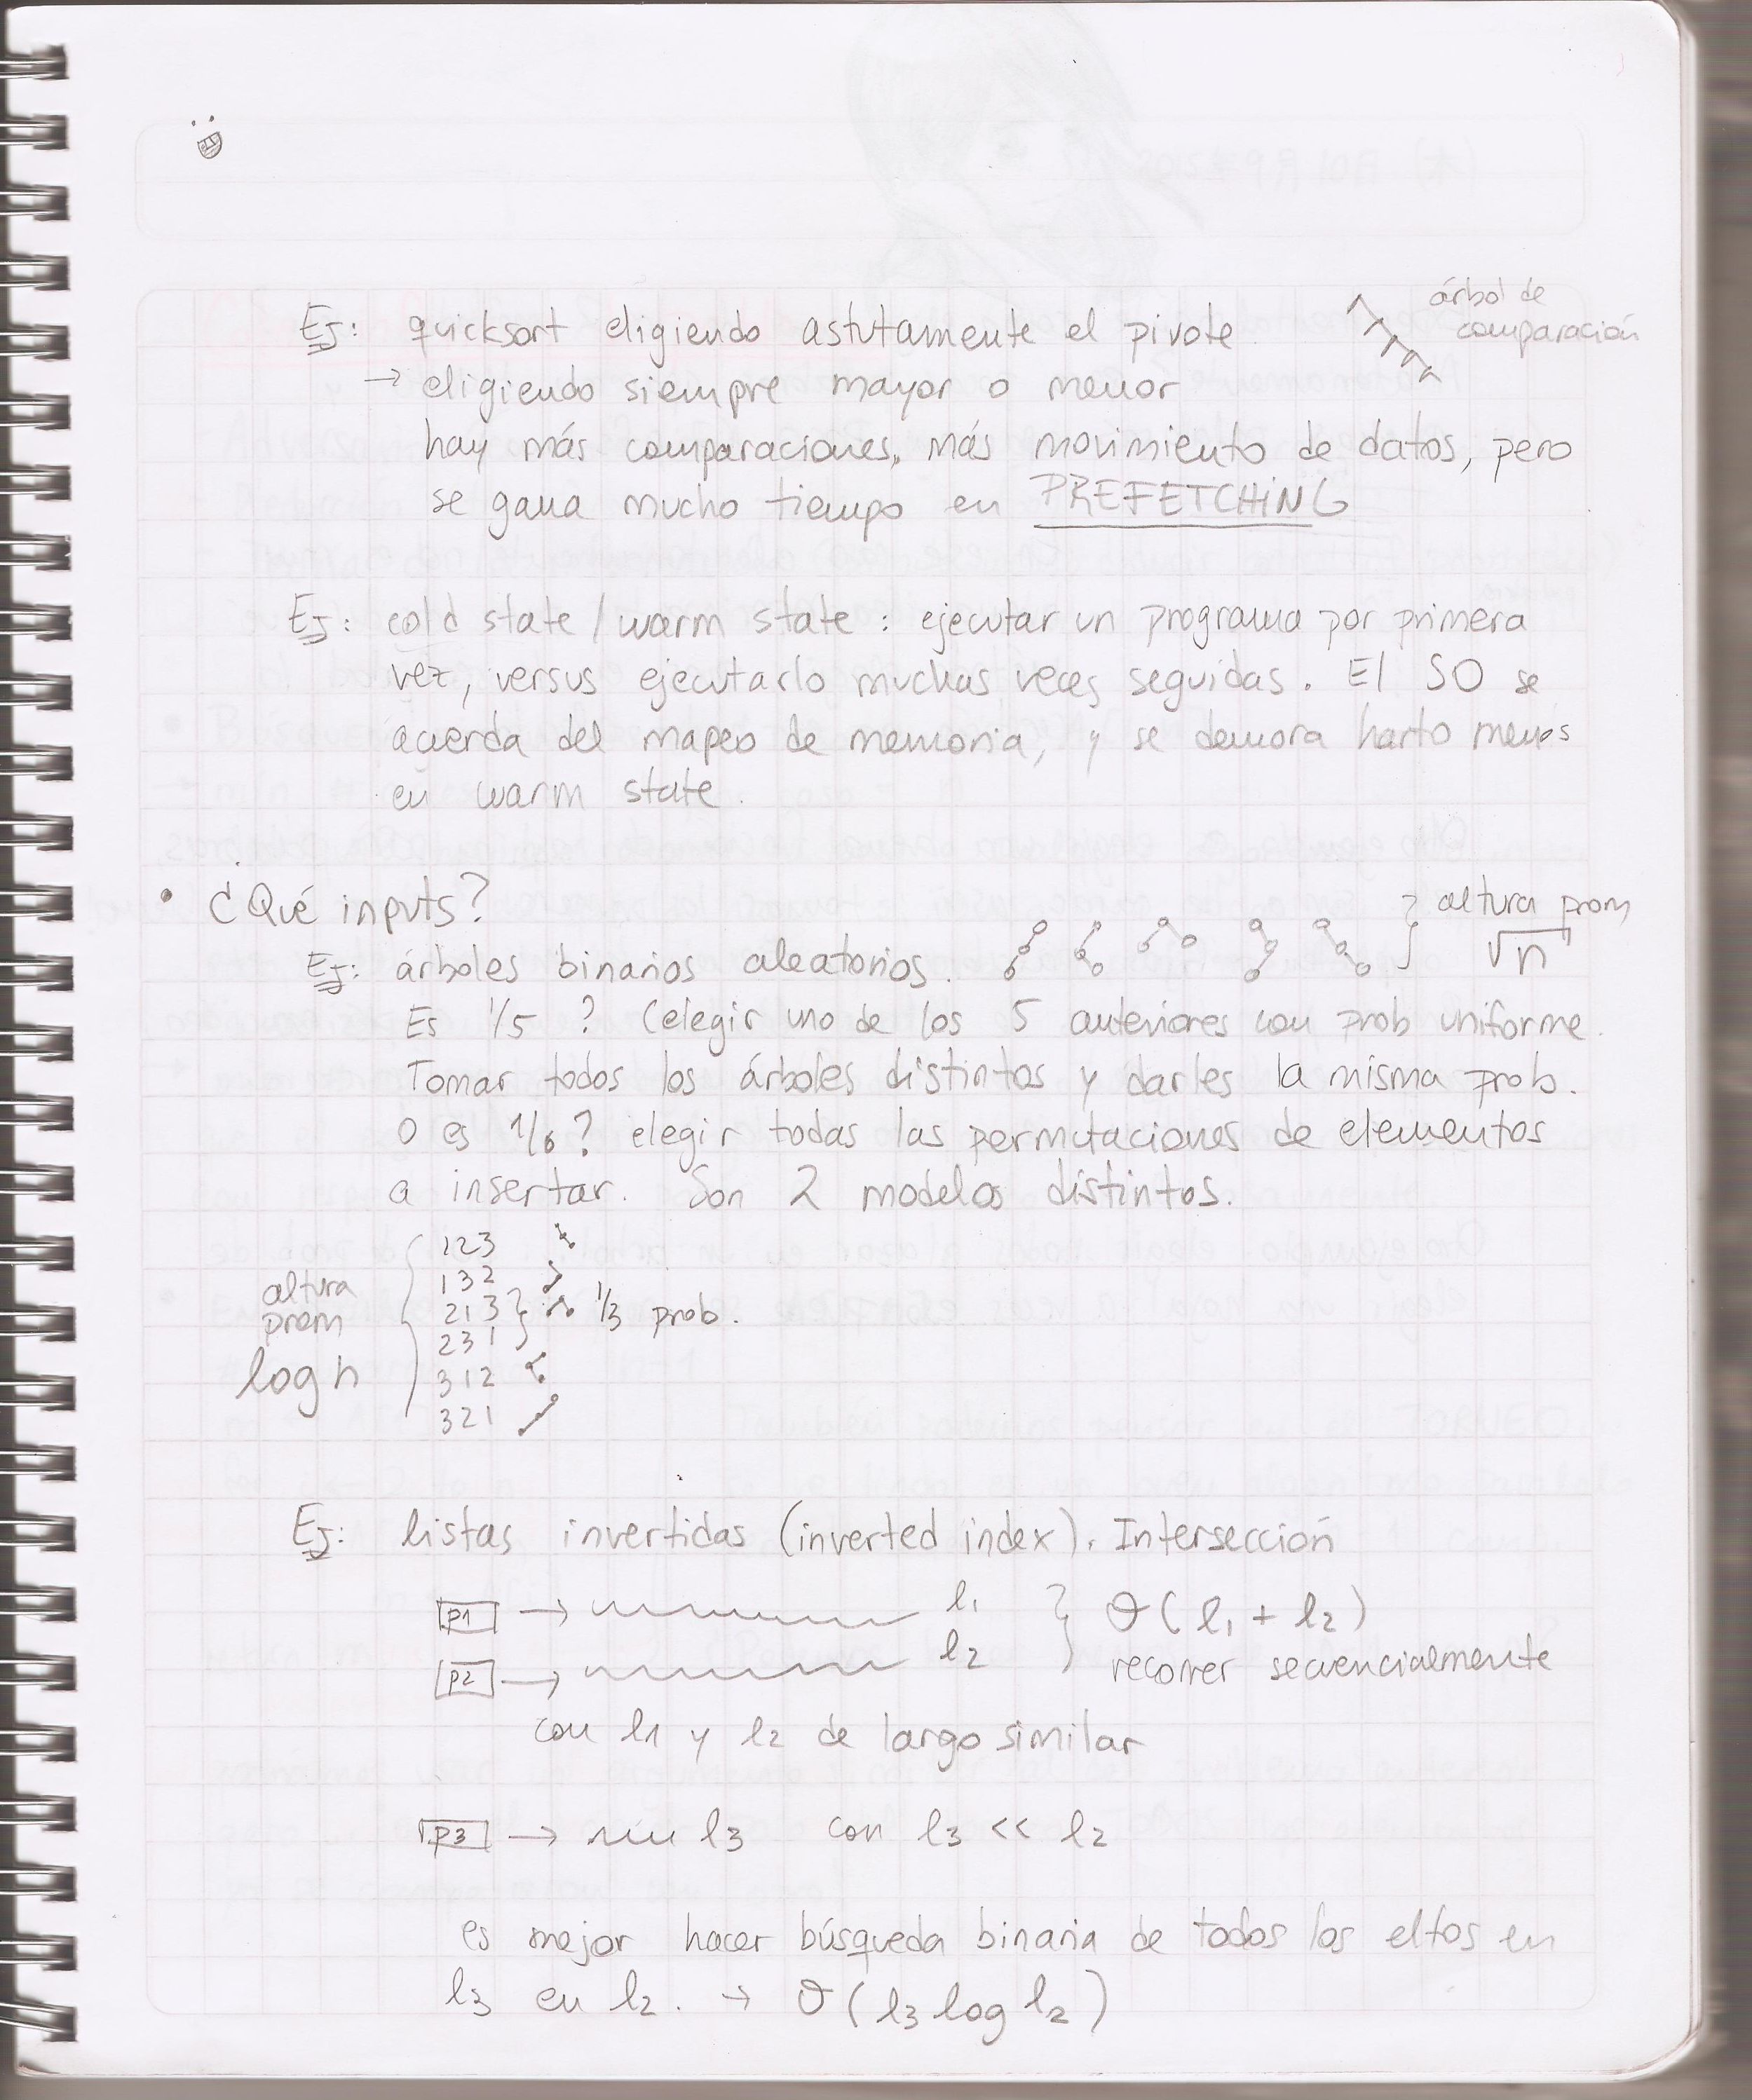 EJ: quicksort eligiendo astutamente el pivote
árbol de
comparación
→ eligiendo siempre mayor o menor
hay más comparaciones, más movimiento de datos, pero
se gana mucho tiempo en PREFETCHING
EJ: cold state / warm state : ejecutar un programa por primera
vez, versus ejecutarlo muchas veces seguidas. El SO se
acuerda del mapeo de memoria, y se demora harto menos
en warm state.
• ¿Qué inputs?
EJ: árboles binarios aleatorios.
} altura prom
√n
Es 1/5 ? (elegir uno de los 5 anteriores con prob uniforme.
Tomar todos los árboles distintos y darles la misma prob.
O es 1/6? elegir todas las permutaciones de elementos
a insertar. Son 2 modelos distintos.
altura
prom
log n
123
132
213 } 1/3 prob.
231
312
321
EJ: listas invertidas (inverted index). Intersección
p1 → l1 } O(l1 + l2)
p2 → l2 recorrer secuencialmente
con l1 y l2 de largo similar
p3 → l3 con l3 << l2
es mejor hacer búsqueda binaria de todos los eltos en
l3 en l2. → O(l3 log l2)